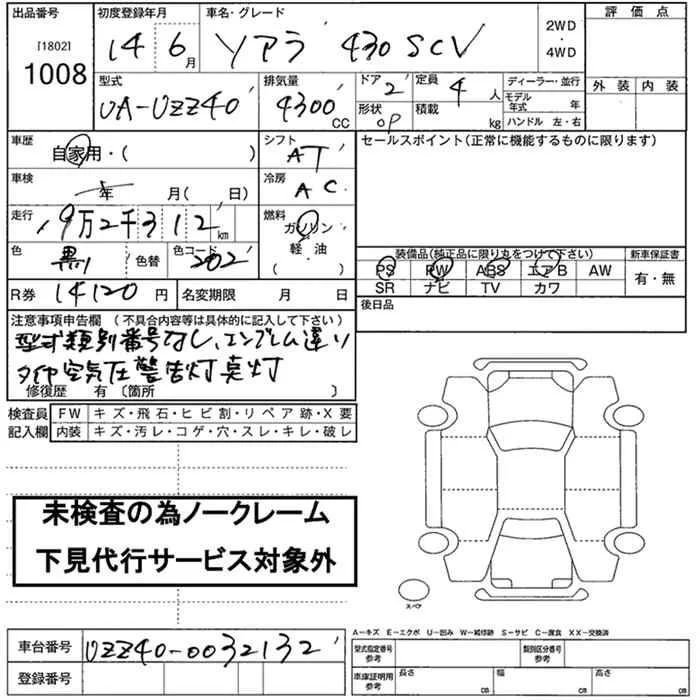 出品番号 初度登録年月 車名・グレード 評価点
[1802]
1008
14 6月 ソアラ 430SCV 2WD・4WD
型式 排気量 ドア 定員 ディーラー・並行 外装 内装
UA-UZZ40 4300 CC 2 4人 モデル年式 年
形状 OP 積載 kg ハンドル 左・右
車歴 自家用・( ) シフト AT セールスポイント(正常に機能するものに限ります)
車検 年 月( 日) 冷房 AC
走行 9万2千312km 燃料 ガソリン
軽・油
( ・ )
色 黒 色替 色コード 202
装備品(純正品に限り丸をつけて下さい) 新車保証書
PS PW ABS エアB AW 有・無
SR ナビ TV カワ
R券 14120円 名変期限 月 日 後日品
注意事項申告欄 (不具合内容等は具体的に記入して下さい)
型式類別番号なし、エンブレム違い
タイヤ空気圧警告灯点灯
修復歴 有 〔箇所 〕
検査員 FW キズ・飛石・ヒビ割・リペア跡・X要
記入欄 内装 キズ・汚レ・コゲ・穴・スレ・キレ・破レ
未検査の為ノークレーム
下見代行サービス対象外
スペア
A―キズ E―エクボ U―凹み W―補修跡 S―サビ C―腐食 XX―交換済
車台番号 UZZ40-0032132
型式指定番号 参考 類別区分番号 参考
登録番号
車庫証明用 参考 長さ cm 幅 cm 高さ cm